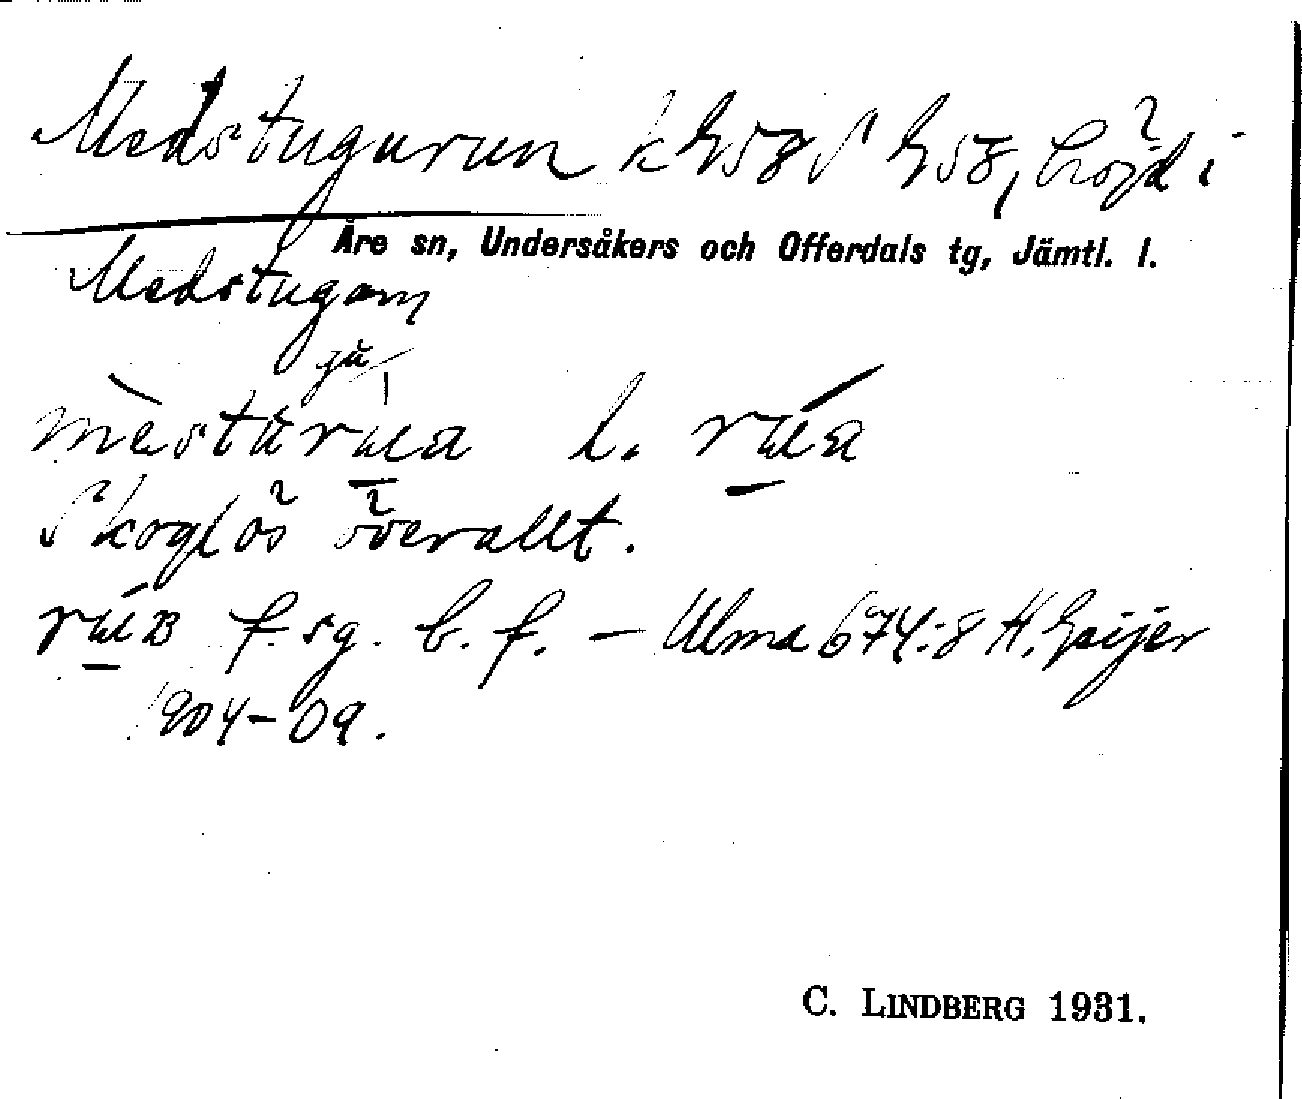 Medstugurun k G58 S G58, höjd i
Åre sn, Undersåkers och Offerdals tg, Jämtl. l.
Medstugan
gu
mèsturua l. rúa
Skoglös överallt.
f. sg. b. f. – Ulma 674:8 H. Geijer
1904-09.
C. LINDBERG 1931.